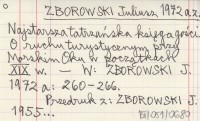 ZBOROWSKI Juliusz 1972 a z.
Najstarsza tatrzańska księga gości
O ruchu turystycznym przy
Morskim Oku w początkach
XIX w. — W: ZBOROWSKI J.
1972 a: 260-266.
Przedruk z: ZBOROWSKI J.
1955...